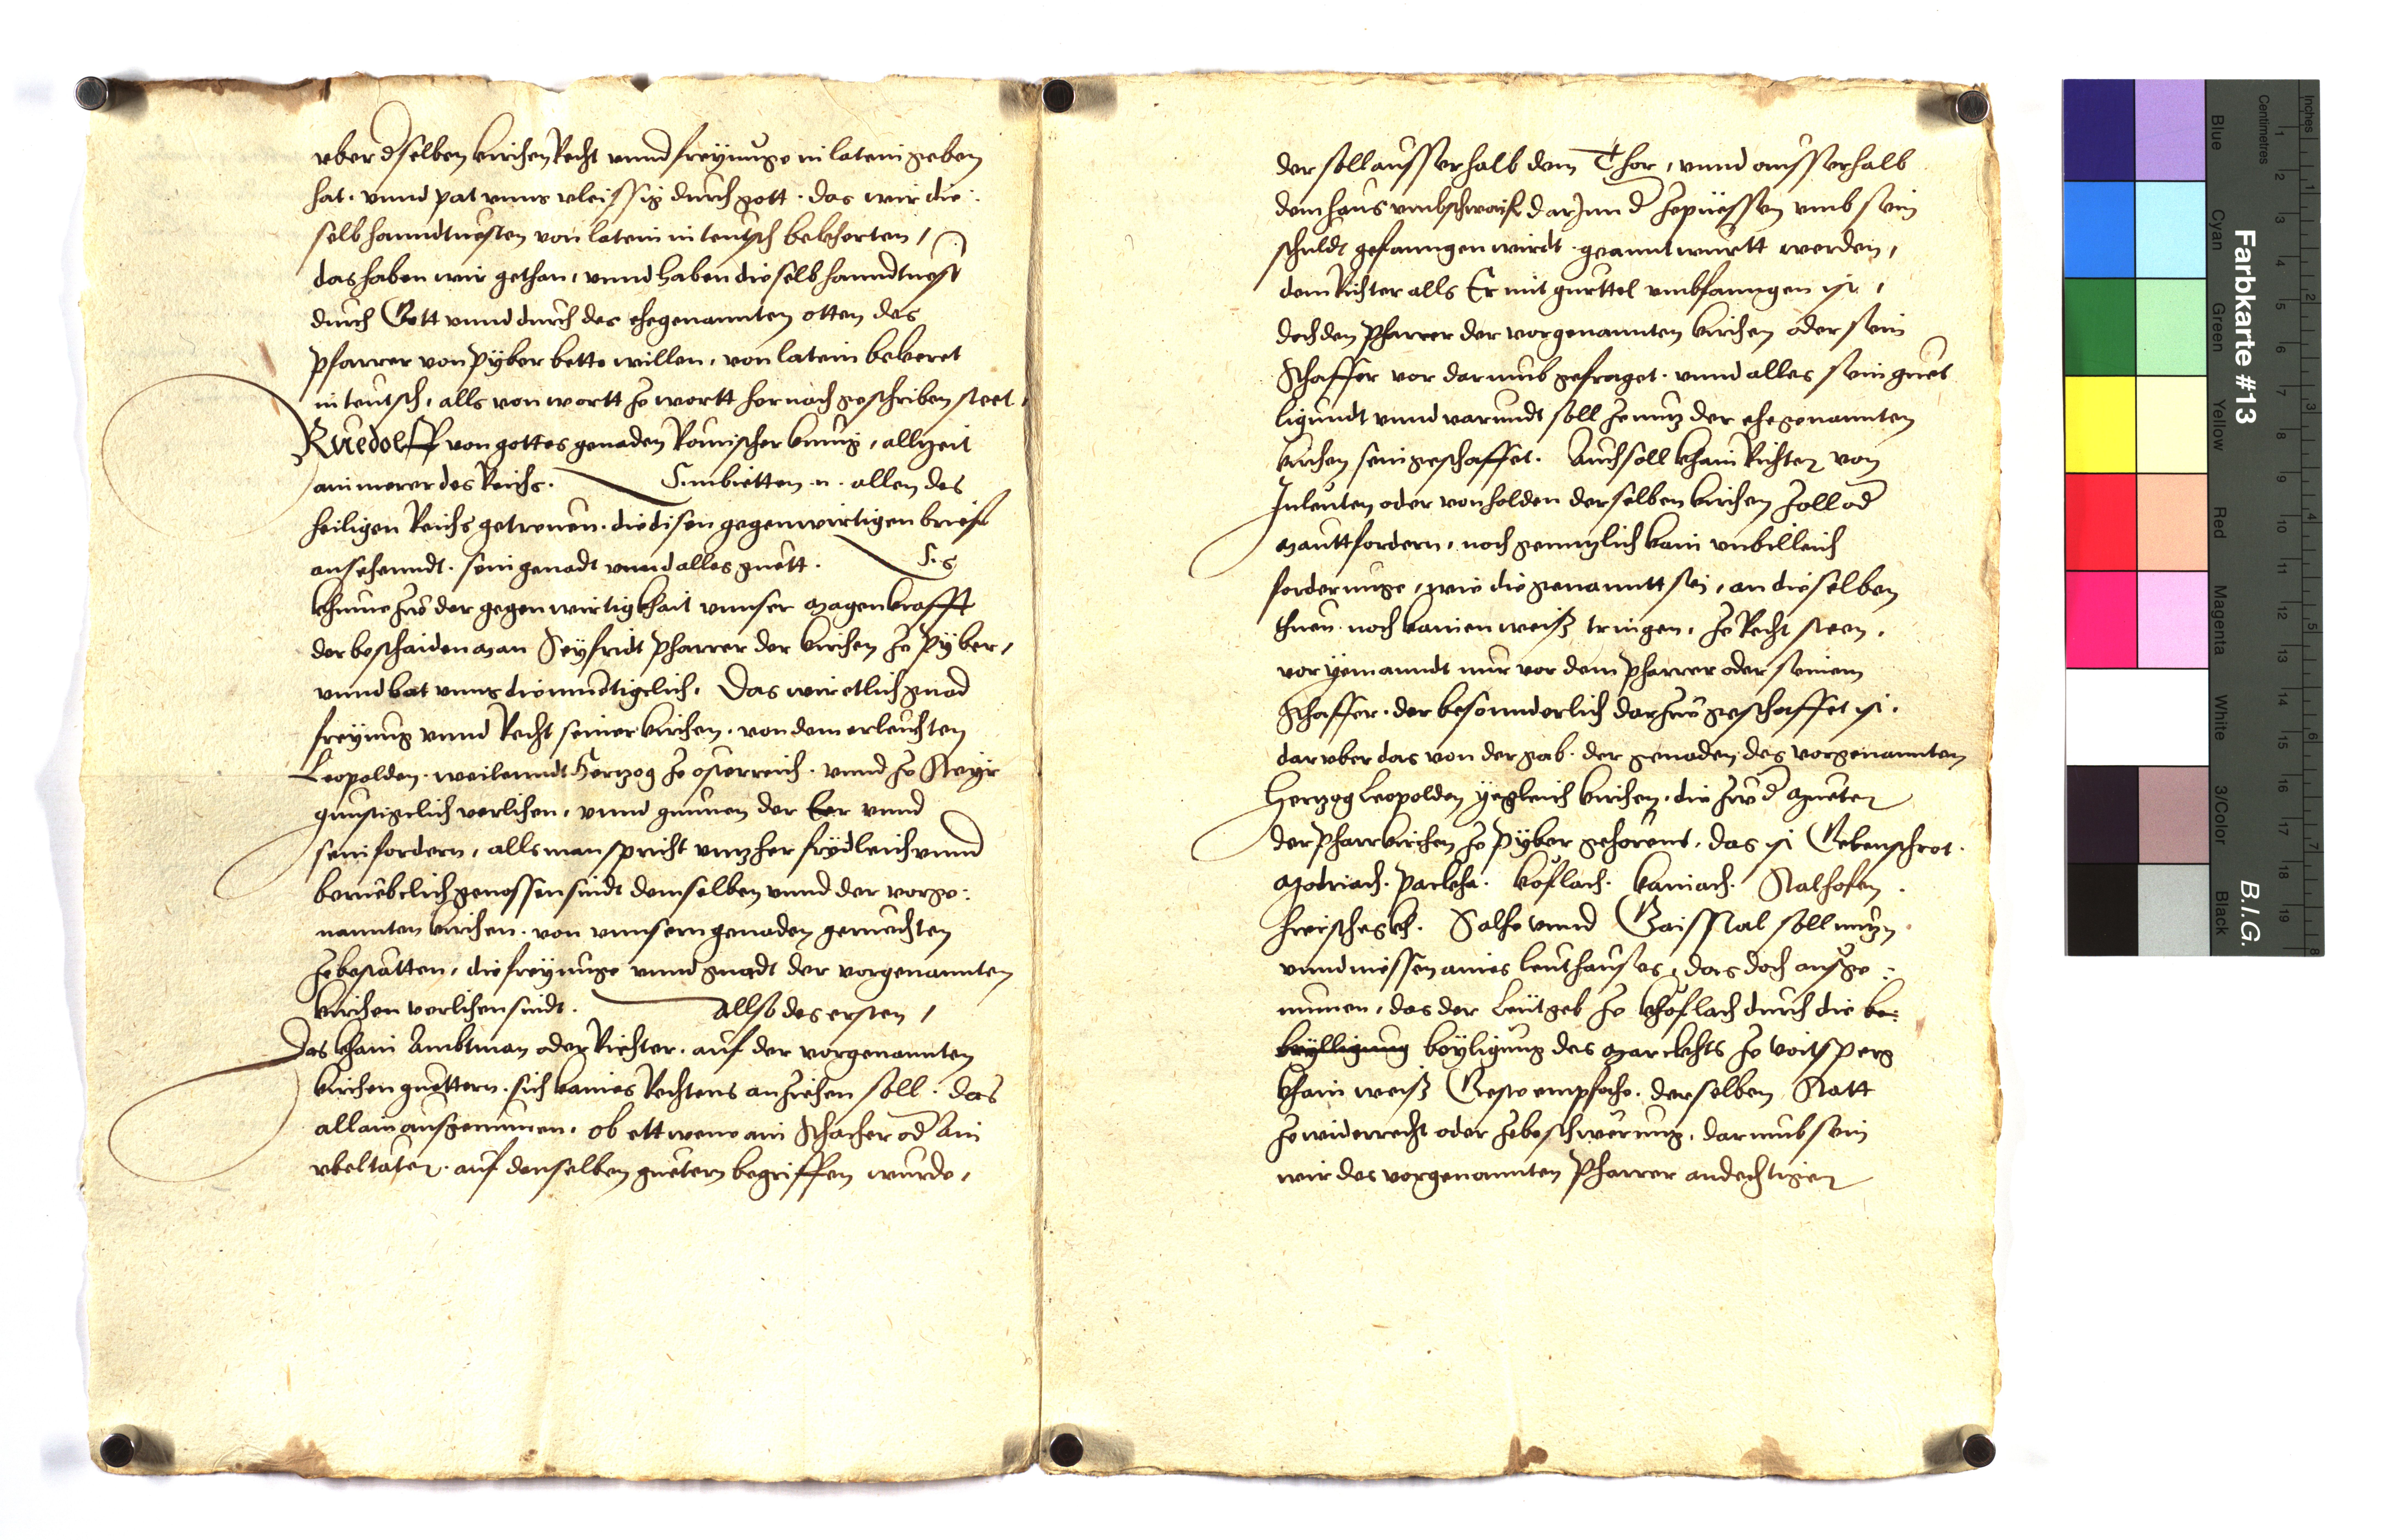 vber dselben kirchen Recht vnnd freyunge in latein geben
hat. vnnd pat vnns vleissig durch gott. das wir die:
selb hanndtuesten von latein in teutsch bekherten /
das haben wir gethan, vnnd haben dieselb hanndtuest
durch Gott vnnd durch des ehegenannten otten des
pfarrer von pÿber bette willen, von latein bekeret
in teutsch, alls von wortt ze wortt hernach geschriben steet.
Ruedolff von gottes genaden Romischer kunig, allzeit
ain merer des Reichs. Embietten n. allen des
heiligen Reichs getreuen. die disen gegenwirtigen brief
ansehenndt. sein genadt vnnd alles guett. E. G
khume zw der gegenwirtigkhait vnnser Magenkrafft
der beschaiden man Seÿfridt pharrer der kirchen ze pÿber,
vnnd bat vnns diemuetigelich. Das wir etlich gnad
freyung vnnd Recht seiner kirchen. von dem erleuchten
Leopolden. weilenndt Hertzog ze osterreich. vnnd ze Steyr
gunstigelich verlihen, vnnd
sein fordern, alls man spricht vnnzher frÿdleich vnnd
beruebelich genossen sindt demselben vnnd der vorge:
nannten kirchen. von vnnsern genaden geruechten
zebestatten, die freyunge vnnd gnadt der vorgenannten
kirchen verlihen sindt. Allso des ersten /
Das khain Ambtman oder Richter. auf der vorgenannten
kirchen guettern. sich kaines Rechtens anziehen soll. das
allain ausgenumen, ob ettwenn ain Schacher od Ain
vbeltater. auf denselben guetern begriffen wurde,
der soll ausserhalb dem Thor, vnnd ausserhalb
dem haus vmbschwaift darInn d zepuessen vmb sein
schuldt gefanngen wirdt. geanntwurtt werden,
dem Richter alls Er mit gurttel vmbfanngen ist,
doch den Pharrer der vorgenannten kirchen oder sein
Schaffer vor darumb gefraget. vnnd alles sein guet
ligundt vnnd varundt soll ze nutz der ehegenannten
kirchen sein geschaffet. Auch soll khain Richter von
Inleuten oder von holden derselben kirchen Zoll od
Mautt fordern, noch genntzlich kain vnbilleich
forderunge, wie die genanntt sei, an dieselben
thuen. noch kainen weiß tringen, ze Recht steen,
vor yemanndt nur vor dem Pharrer oder seinem
Schaffer. der besonnderlich darzw geschaffet ist.
darvber das von der gab. der genaden des vorgenannten
Hertzog Leopolden ÿegleich kirchen. die zw d Mueter
der Pharrkirchen ze pÿber gehorent, das ist Gebenschrot.
Modriach. Packha. köflach. kainach. Stalhofen.
Salhe vnnd Gaisstal soll nutzn
vnnd niessen aines leuthauses, das doch ausge:
numen, das der Leutgeb ze khoflach durch die be:
beÿlligung beÿligung des Marckhts ze Voitsperg
khain weiß Gest empfahe. derselben Statt
ze widerrecht oder zebeschwerung, darumb sein
wir des vorgenannten Pharrer andechtiger